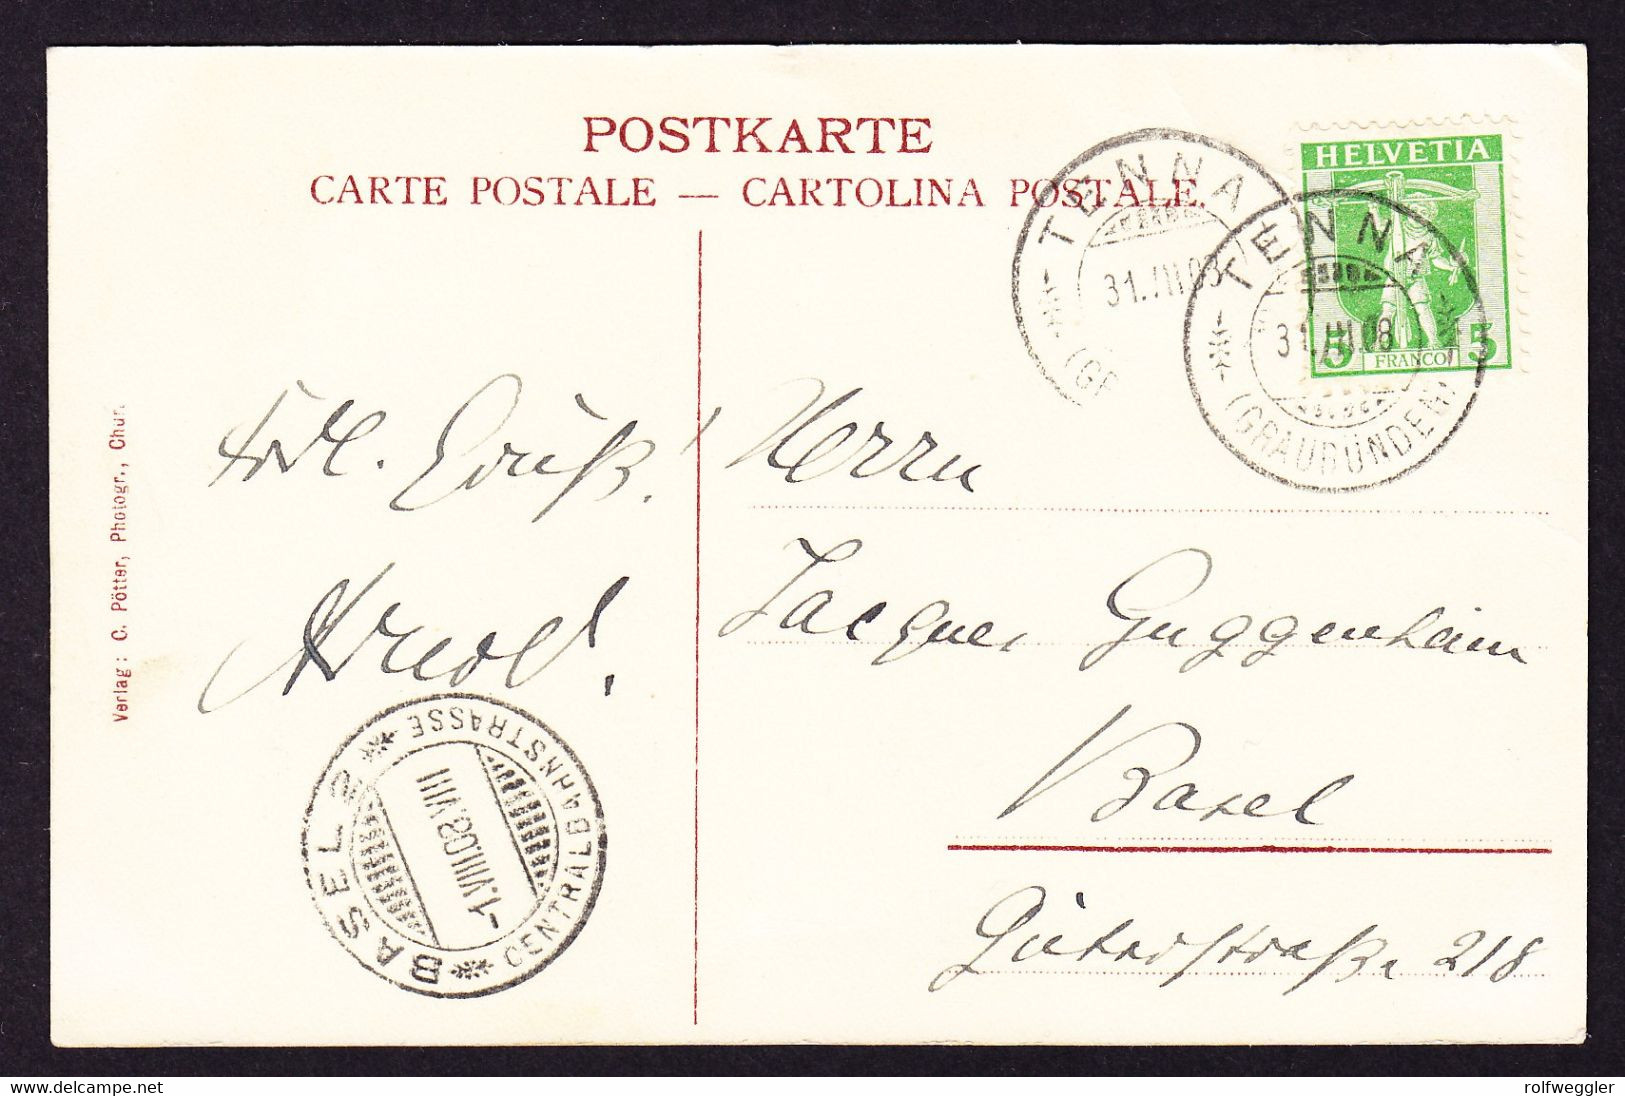 POSTKARTE
CARTE POSTALE — CARTOLINA POSTALE.
HELVETIA
5 FRANCO 5
TENNA
31.VII.08
(GR
TENNA
31.VII.08
(GRAUBÜNDEN)
Verlag: C. Pötter, Photogr., Chur.
Gruß!
Herrn
Jacques Guggenheim
Basel
Güterstraße 218
BASEL 2
-1.VIII.08.VIII
CENTRALBAHNSTRASSE
delcampe.net
rolfweggler